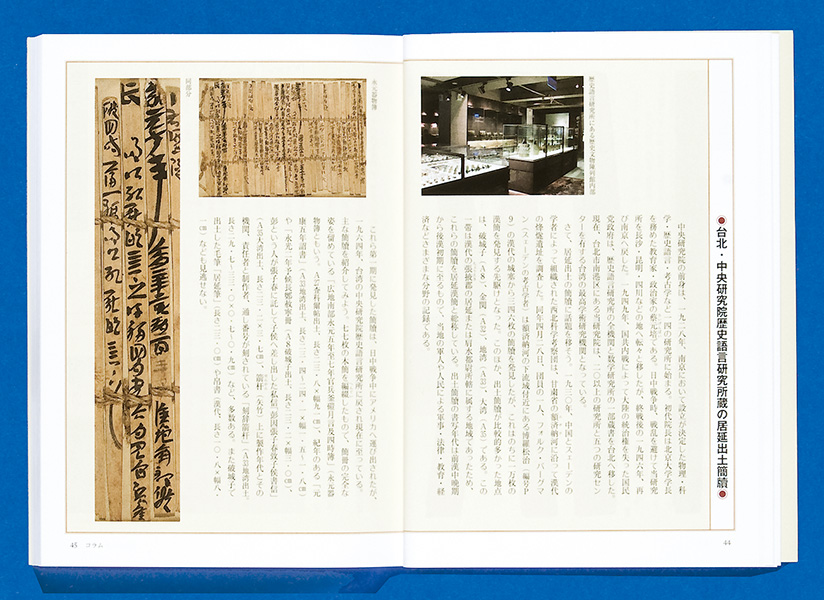 台北・中央研究院歴史語言研究所蔵の居延出土簡牘
歴史語言研究所にある歴史文物陳列館内部
中央研究院の前身は、一九二八年、南京において設立が決定した物理・科
学・歴史語言・考古学など一四の研究所に始まる。初代院長は北京大学学長
を務めた教育家・政治家の蔡元培である。日中戦争時、戦乱を避けて当研究
所を長沙・昆明・四川などの地へ転々と移したが、終戦後の一九四六年、再
び南京へ戻した。一九四九年、国共内戦によって大陸の統治権を失った国民
党政府は、歴史語言研究所の全機関と数学研究所の一部蔵書を台北へ移した。
現在、台北市南港区にある当研究院は、二〇以上の研究所と五つの研究セン
ターを有する台湾の最高学術研究機関となっている。
さて、居延出土の簡牘に話題を移そう。一九三〇年、中国とスェーデンの
学者によって組織された西北科学考察団は、甘粛省の額済納河に沿って漢代
の烽燧遺址を調査した。同年四月二八日、団員の一人、フォルク・バーグマ
ン（スェーデンの考古学者）は額済納河の下流域付近にある博羅松治（編号P
9）の漢代の城塞から三四六枚の簡牘を発見したが、これはのちに一万枚の
漢簡を発見する先駆けとなった。このほか、出土簡牘が比較的多かった地点
は、破城子（A8）、金関（A32）、地湾（A33）、大湾（A35）である。この
一帯は漢代の張掖郡の居延都尉または肩水都尉所轄に属する地域であったため、
これらの簡牘を居延漢簡と総称している。出土簡牘の書写年代は前漢中晩期
から後漢初期に至るもので、当地の軍人や人民による軍事・法律・教育・経
済などさまざまな分野の記録である。
44
永元器物簿
同部分
これら第一期に発見した簡牘は、日中戦争中にアメリカへ運び出されたが、
一九六四年、台湾の中央研究院歴史語言研究所に戻され現在に至っている。
主な簡牘を紹介してみよう。七七枚の木簡を編綴したもので、簡冊の完全な
姿を留めている「広地南部永元五年至七年官兵釜磑月言及四時簿」（永元器
物簿ともいう。
や「永光二年予候長鄭赦寧冊」
彭という人が張子春に託して子侯へ差し出した私信「彭因張子春致子侯書信」
機関、責任者と制作者、通し番号が刻されている
出土した毛筆「居延筆」
㎝）なども見逃せない。
45 コラム